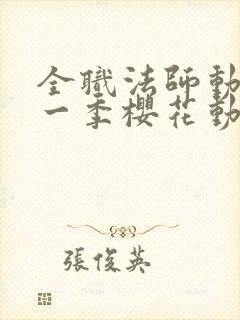 全職法師動
一季櫻花動
張俊英